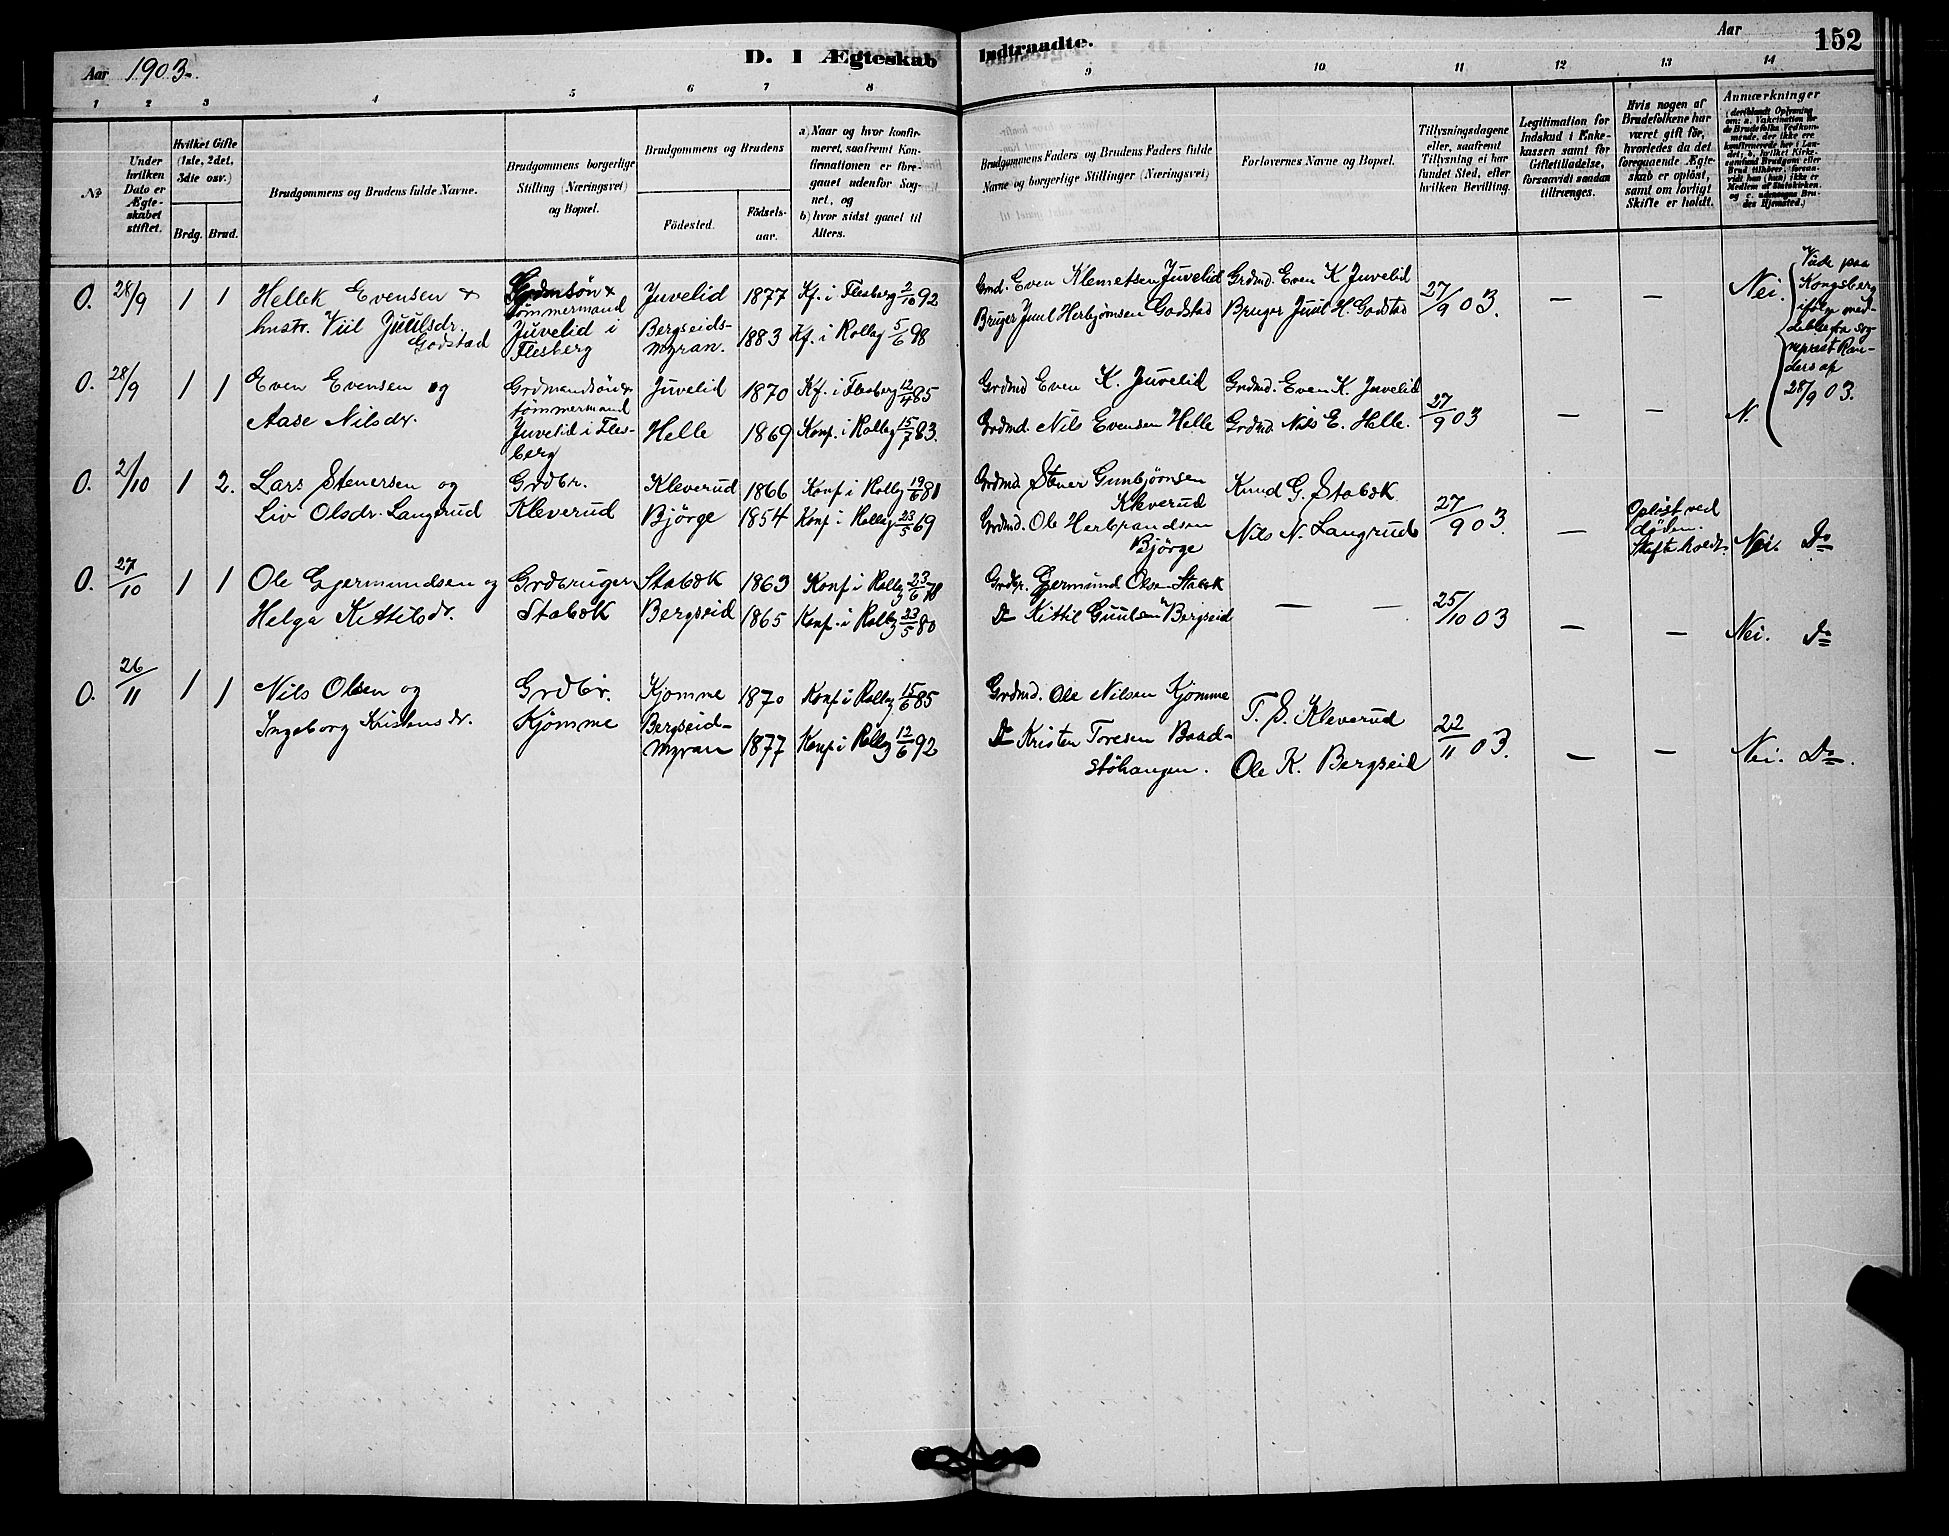 Aar 1903.
D. I Ægteskab Indtraadte.
Aar
152
1 2 3 4 5 6 7 8 9 10 11 12 13 14
№
Under hvilken Dato er Ægteskabet stiftet.
Hvilket Gifte (1ste, 2det, 3die osv.)
Brdg. Brud.
Brudgommens og Brudens fulde Navne.
Brudgommens borgerlige Stilling (Næringsvei) og Bopæl.
Brudgommens og Brudens
Födested.
Födselsaar.
a) Naar og hvor konfirmeret, saafremt Konfirmationen er foregaaet udenfor Sognet, og
b) hvor sidst gaaet til Alters.
Brudgommens Faders og Brudens Faders fulde Navne og borgerlige Stillinger (Næringsvei)
Forlovernes Navne og Bopæl.
Tillysningsdagene eller, saafremt Tillysning ei har fundet Sted, efter hvilken Bevilling.
Legitimation for Indskud i Enkekassen samt for Giftetilladelse, forsaavidt saadan tiltrænges.
Hvis nogen af Brudefolkene har været gift før, hvorledes da det foregaaende Ægteskab er oplöst, samt om lovligt Skifte er holdt.
Anmærkninger
O. 28/9 1 1 Hellek Evensen &
hustr. Viil Juulsdr.
Godstad
tømmermand
Juvelid i
Flesberg
Juvelid 1877 Kf. i Flesberg 2/10 92
Bergseids-
myran. 1883 Kf. i Rollag 5/6 98
Gmd. Even Klemetsen Juvelid Grdmd. Even K Juvelid
Bruger Juul Herbjørnsen Godstad Bruger Juul H. Godstad
27/9 03. — — Nei.
Viede paa
Kongsberg
ifølge med-
delelse fra sog-
nepræst Ran-
ders af
28/9 03.
O. 28/9 1 1 Even Evensen og
Aase Nilsdr.
Grdmandsøn &
tømmermand
Juvelid i Fles-
berg
Juvelid 1870 Kf. i Flesberg 12/4 85
Helle 1869 Konf. i Rollag 15/7 83.
Grdmd Even K. Juvelid Grdmd. Even K Juvelid
Grdmd. Nils Evensen Helle Grdmd. Nils E. Helle.
27/9 03 — — N.
O. 2/10 1 2. Lars Stenersen og
Liv Olsdr. Langerud
Grdbr.
Kleverud
Kleverud 1866 Konf i Rollag 19/6 81
Björge 1854 Konf. i Rollag 23/5 69
Grdmd Stener Gunbjörnsen
Kleverud
Grdmd. Ole Herbrandsen
Björge
Knud G. Stabæk
Nils N. Langrud
27/9 03. —
Opløst ved
døden.
Skifte holdt.
Nei. Do
O. 27/10 1 1 Ole Gjermundsen og
Helga Kittilsdr.
Grdbruger
Stabæk
Stabæk 1863 Konf i Rollag 23/6 78
Bergseid 1865 Konf. i Rollag 23/5 80
Grdbr. Gjermund Olsen Stabæk
Do Kittil Guulsen Bergseid
— —
25/10 03 — — Nei. Do
O. 26/11 1 1 Nils Olsen og
Ingeborg Kristensdr.
Grdbr.
Kjömme
Kjomme 1870 Konf i Rollag 15/6 85
Bergseid-
myran 1877 Konf i Rollag 12/6 92
Grdmd. Ole Nilsen Kjömme
Do Kristen Toresen Baad-
støhaugen.
T. S. Kleverud
Ole K. Bergseid
22/11 03. — — Nei. Do.